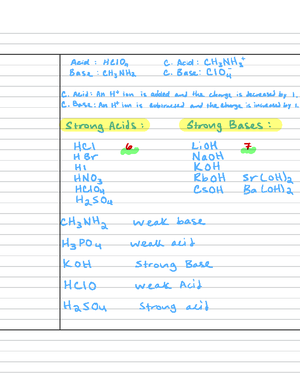 Acid : HClO₄ C. Acid : CH₃NH₃⁺
Base : CH₃NH₂ C. Base : ClO₄⁻
C. Acid : An H⁺ ion is added and the charge is decreased by 1.
C. Base : An H⁺ ion is subtracted and the charge is increased by 1.
Strong Acids : Strong Bases :
HCl 6 LiOH 7
HBr NaOH
HI KOH
HNO₃ RbOH Sr(OH)₂
HClO₄ CsOH Ba(OH)₂
H₂SO₄
CH₃NH₂ weak base
H₃PO₄ weak acid
KOH Strong Base
HClO weak Acid
H₂SO₄ Strong acid